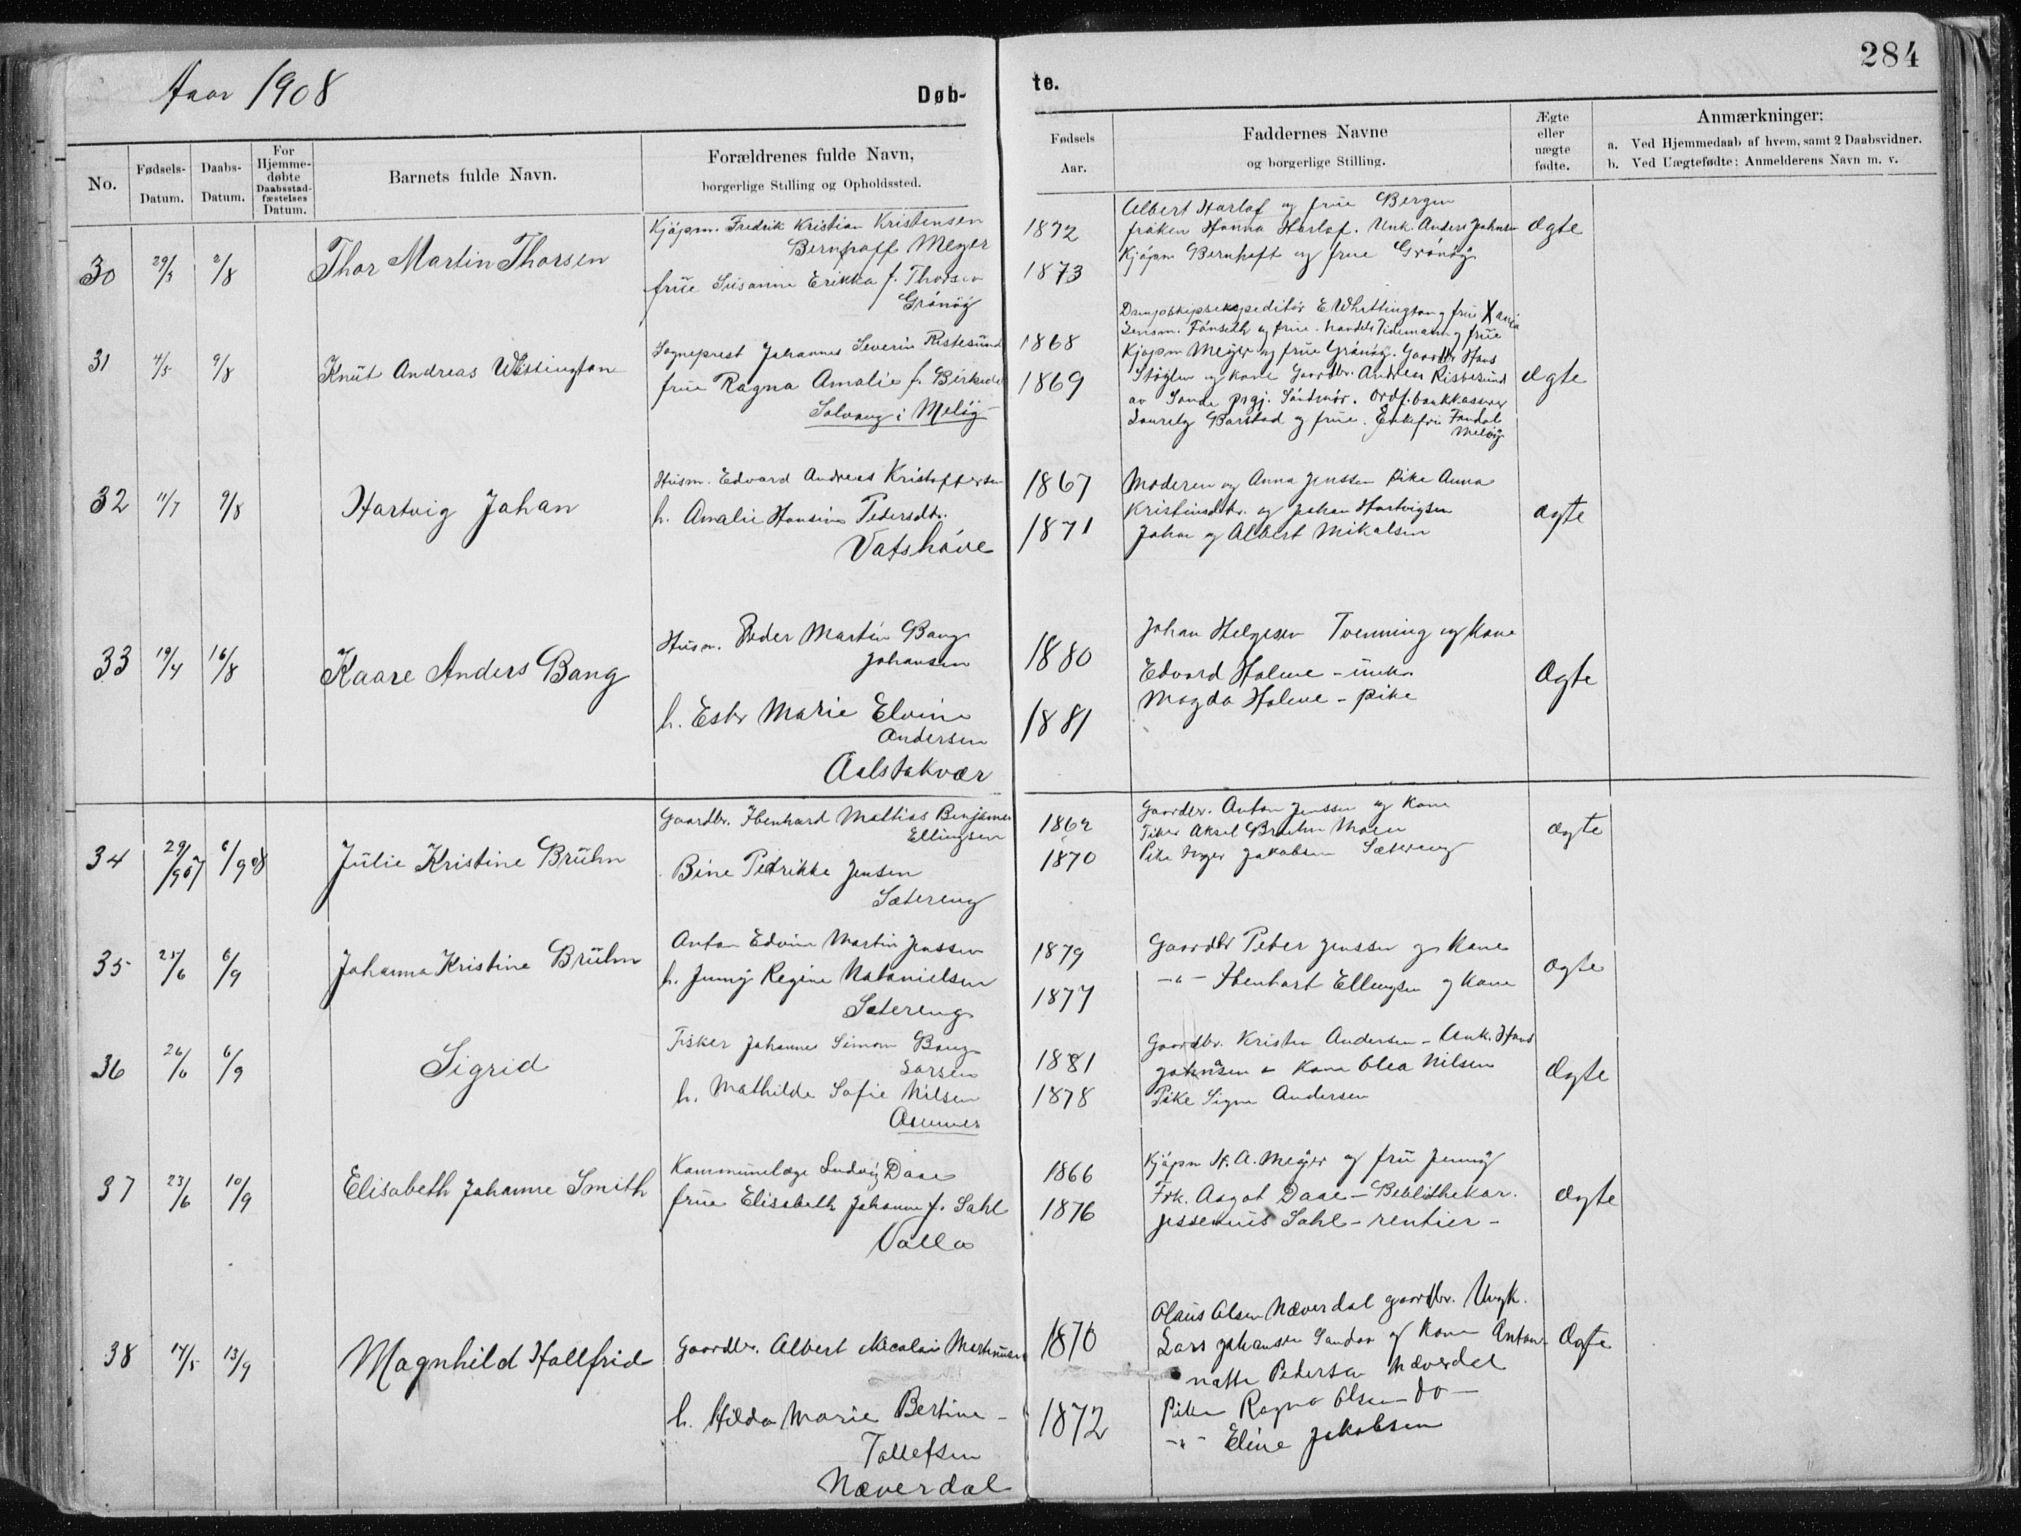 Aar 1908
Døb-
te.
284
No.
Fødsels-
Datum.
Daabs-
Datum.
For
Hjemme-
døbte
Daabsstad-
fæstelses
Datum.
Barnets fulde Navn.
Forældrenes fulde Navn,
borgerlige Stilling og Opholdssted.
Fødsels
Aar.
Faddernes Navne
og borgerlige Stilling.
Ægte
eller
uægte
fødte.
Anmærkninger:
a. Ved Hjemmedaab af hvem, samt 2 Daabsvidner.
b. Ved Uægtefødte: Anmelderens Navn m. v.
30 29/3 2/8 Thor Martin Thorsen
Kjøpm. Fredrik Kristian Kristensen
Bernhoff Meyer
frue Susanne Erikka f. Thorsen
Grønøy
1872
1873
Albert Harlof og frue Bergen
frøken Hanna Harlof. Unk. Anders Jahnsen
Kjøpm Bernhoft og frue Grønøy
ægte
31 4/5 9/8 Knut Andreas Whittington
Sogneprest Johannes Severin Ristesund
frue Ragna Amalie f. Birkedal
Solvang i Meløy
1868
1869
Dampskipsekspeditør E Whittington og frue X ania
Lensm. Fønseth og frue. Handels Tidemann og frue
Kjøpm Meyer og frue Grønøy. Gaardbr Hans
Støglen og kone Gaardbr. Andreas Ristesund
av Sande prgj. Søndmør. Ordf. bankkasserer
Laurely Barstad og frue. Enkefru Fondal
Meløy
ægte
32 11/7 9/8 Hartvig Johan
Husm. Edvard Andreas Kristoffersen
h. Amalie Hansine Pedersdtr.
Vatshøve
1867
1871
Moderen og Anna Jenssen Pike Anna
Kristensdtr. og Johan Hartvigsen
Johan og Albert Mikalsen
ægte
33 19/4 16/8 Kaare Anders Bang
Husm. Peder Martin Bang
Johansen
h. Ester Marie Elvine
Andersen
Aalstakvær
1880
1881
Johan Helgesen Tvenning og kone
Edvard Holme - unk.
Magda Holme - pike
ægte
34 29/1907 6/908 Julie Kristine Bruhn
Gaardbr. Ibenhard Mathias Benjamin
Ellingsen
Bine Pedrikke Jensen
Sætereng
1862
1870
Gaardbr. Anton Jenssen og kone
Fisker Aksel Bruhn Moen
Pike Inger Jakobsen Sætereng
ægte
35 25/6 6/9 Johanna Kristine Bruhn
Anton Edvin Martin Jenssen
h. Jenny Regine Natanielsen
Sætereng
1879
1877
Gaardbr Peter Jenssen og kone
-"- Ibenhart Ellingsen og kone
ægte
36 26/6 6/9 Sigrid
Fisker Johannes Simon Bang
Larsen
h. Mathilde Sofie Nilsen
Ammes
1881
1878
Gaardbr. Kristen Andersen - Unk. Hans
Johansen - kone Olea Nilsen
Pike Signe Andersen
ægte
37 23/6 10/9 Elisabeth Johanne Smith
Kommunelæge Ludvig Daae
frue Elisabeth Johanne f. Sahl
Valla
1866
1876
Kjøpm H. A. Meyer og fru Jenny
Frk. Aagot Daae - Bibliothekar.
Jessenius Sahl - rentier -
ægte
38 14/5 13/9 Magnhild Hallfrid
Gaardbr. Albert Nicolai Martinusen
h. Hilda Marie Bertine -
Tollefsen
Næverdal
1870
1872
Olaus Olsen Næverdal gaardbr. Ungk.
Lars Johansen Sandaa og kone Anton-
nette Pedersen Næverdal
Piken Ragna Olsen - do -
-"- Eline Jakobsen
ægte